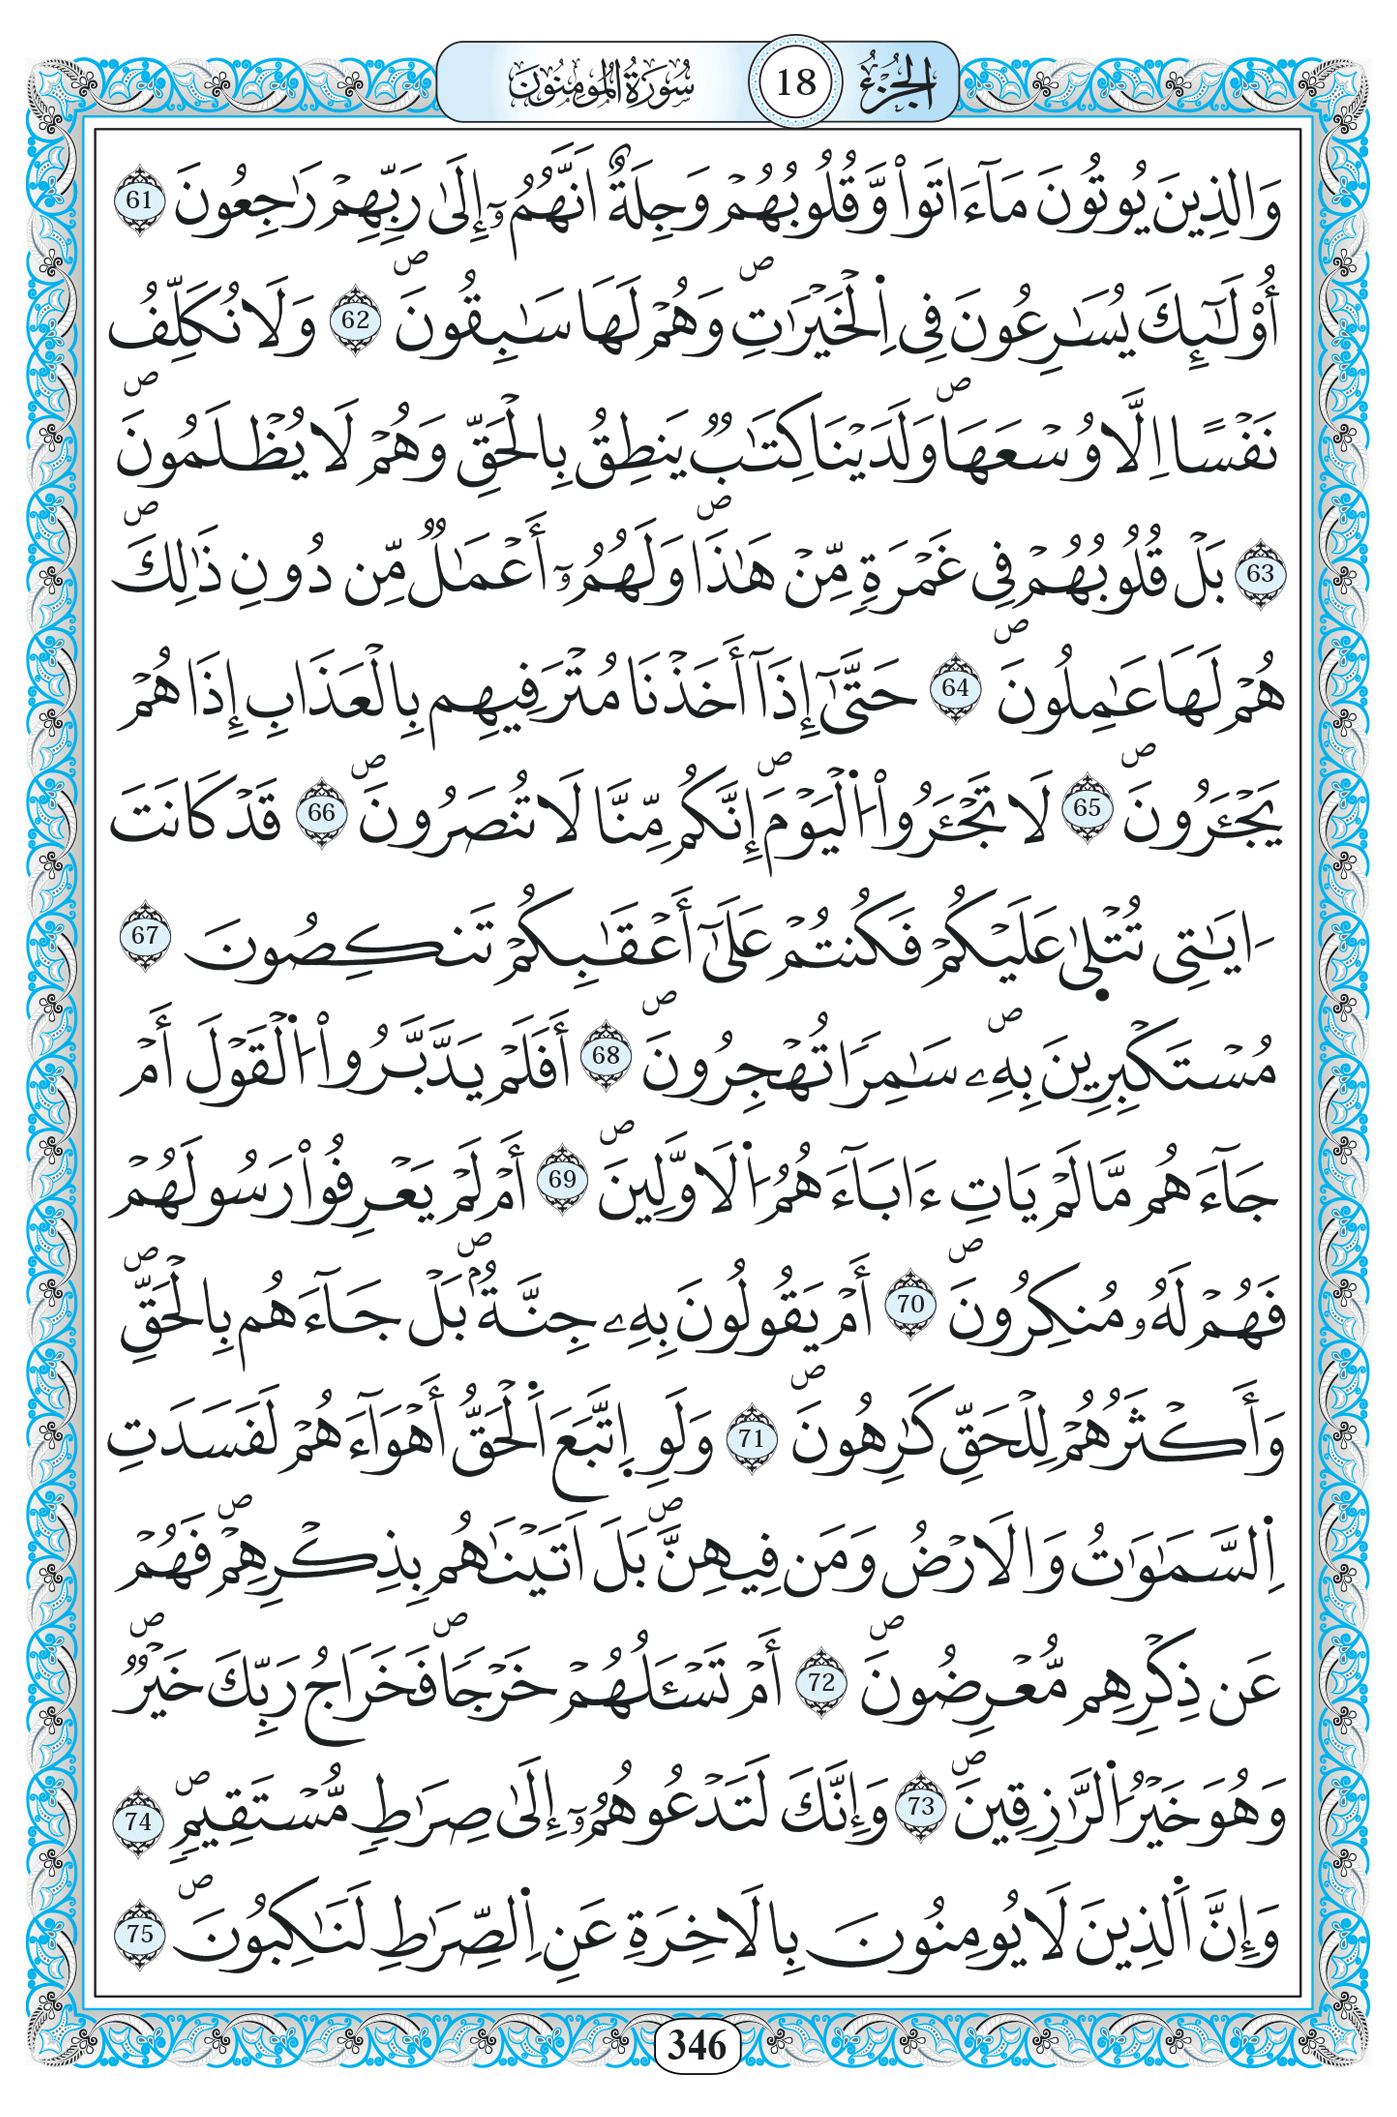 الجزء 18 سورة المومنون
وَالذِينَ يُوتُونَ مَآ ءَاتَواْ وَّقُلُوبُهُمْ وَجِلَةٌ اَنَّهُمُۥٓ إِلَىٰ رَبِّهِمْ رَٰجِعُونَ 61
أُوْلَٰٓئِكَ يُسَٰرِعُونَ فِے اِ۬لْخَيْرَٰتِۖ وَهُمْ لَهَا سَٰبِقُونَۖ 62 وَلَا نُكَلِّفُ
نَفْساً اِلَّا وُسْعَهَاۖ وَلَدَيْنَا كِتَٰبٞ يَنطِقُ بِالْحَقِّ وَهُمْ لَا يُظْلَمُونَۖ
63 بَلْ قُلُوبُهُمْ فِے غَمْرَةٖ مِّنْ هَٰذَاۖ وَلَهُمُۥٓ أَعْمَٰلٞ مِّن دُونِ ذَٰلِكَۖ
هُمْ لَهَا عَٰمِلُونَۖ 64 حَتَّىٰٓ إِذَآ أَخَذْنَا مُتْرَفِيهِم بِالْعَذَابِ إِذَا هُمْ
يَجْـَٔرُونَۖ 65 لَا تَجْـَٔرُواْ اُ۬لْيَوْمَۖ إِنَّكُم مِّنَّا لَا تُنصَرُونَۖ 66 قَدْ كَانَتَ
ـ ايَٰتِے تُتْل۪ىٰ عَلَيْكُمْ فَكُنتُمْ عَلَىٰٓ أَعْقَٰبِكُمْ تَنكِصُونَ 67
مُسْتَكْبِرِينَ بِهِۦ سَٰمِراٗ تُهْجِرُونَۖ 68 أَفَلَمْ يَدَّبَّرُواْ اُ۬لْقَوْلَ أَمْ
جَآءَهُم مَّا لَمْ يَاتِ ءَابَآءَهُمُ اُ۬لَاوَّلِينَۖ 69 أَمْ لَمْ يَعْرِفُواْ رَسُولَهُمْ
فَهُمْ لَهُۥ مُنكِرُونَۖ 70 أَمْ يَقُولُونَ بِهِۦ جِنَّةُۢۖ بَلْ جَآءَهُم بِالْحَقِّۖ
وَأَكْثَرُهُمْ لِلْحَقِّ كَٰرِهُونَۖ 71 وَلَوِ اِ۪تَّبَعَ اَ۬لْحَقُّ أَهْوَآءَهُمْ لَفَسَدَتِ
اِ۬لسَّمَٰوَٰتُ وَالَارْضُ وَمَن فِيهِنَّۖ بَلَ اَتَيْنَٰهُم بِذِكْرِهِمْۖ فَهُمْ
عَن ذِكْرِهِم مُّعْرِضُونَۖ 72 أَمْ تَسْـَٔلُهُمْ خَرْجاٗۖ فَخَرَاجُ رَبِّكَ خَيْرٞۖ
وَهُوَ خَيْرُ اُ۬لرَّٰزِقِينَۖ 73 وَإِنَّكَ لَتَدْعُوهُمُۥٓ إِلَىٰ صِرَٰطٖ مُّسْتَقِيمٖۖ 74
وَإِنَّ اَ۬لذِينَ لَا يُومِنُونَ بِالَاخِرَةِ عَنِ اِ۬لصِّرَٰطِ لَنَٰكِبُونَۖ 75
346